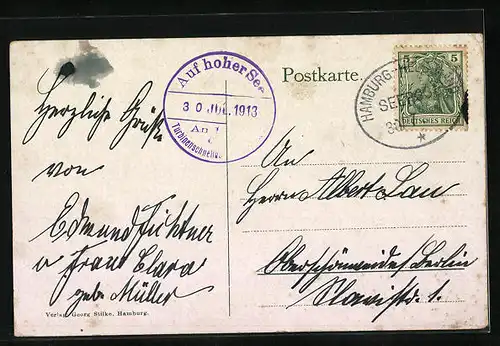 Auf hoher See
30 JUL. 1913
An
Turbinenschnell
Postkarte.
HAMBURG
SEE
30
*
5 5
DEUTSCHES REICH
Herzliche Grüße
von
Edmund Fichtner
u Frau Clara
geb. Müller
An
Herrn Albert Lau
Oberschöneweide/Berlin
str. 1.
Verlag Georg Stilke, Hamburg.